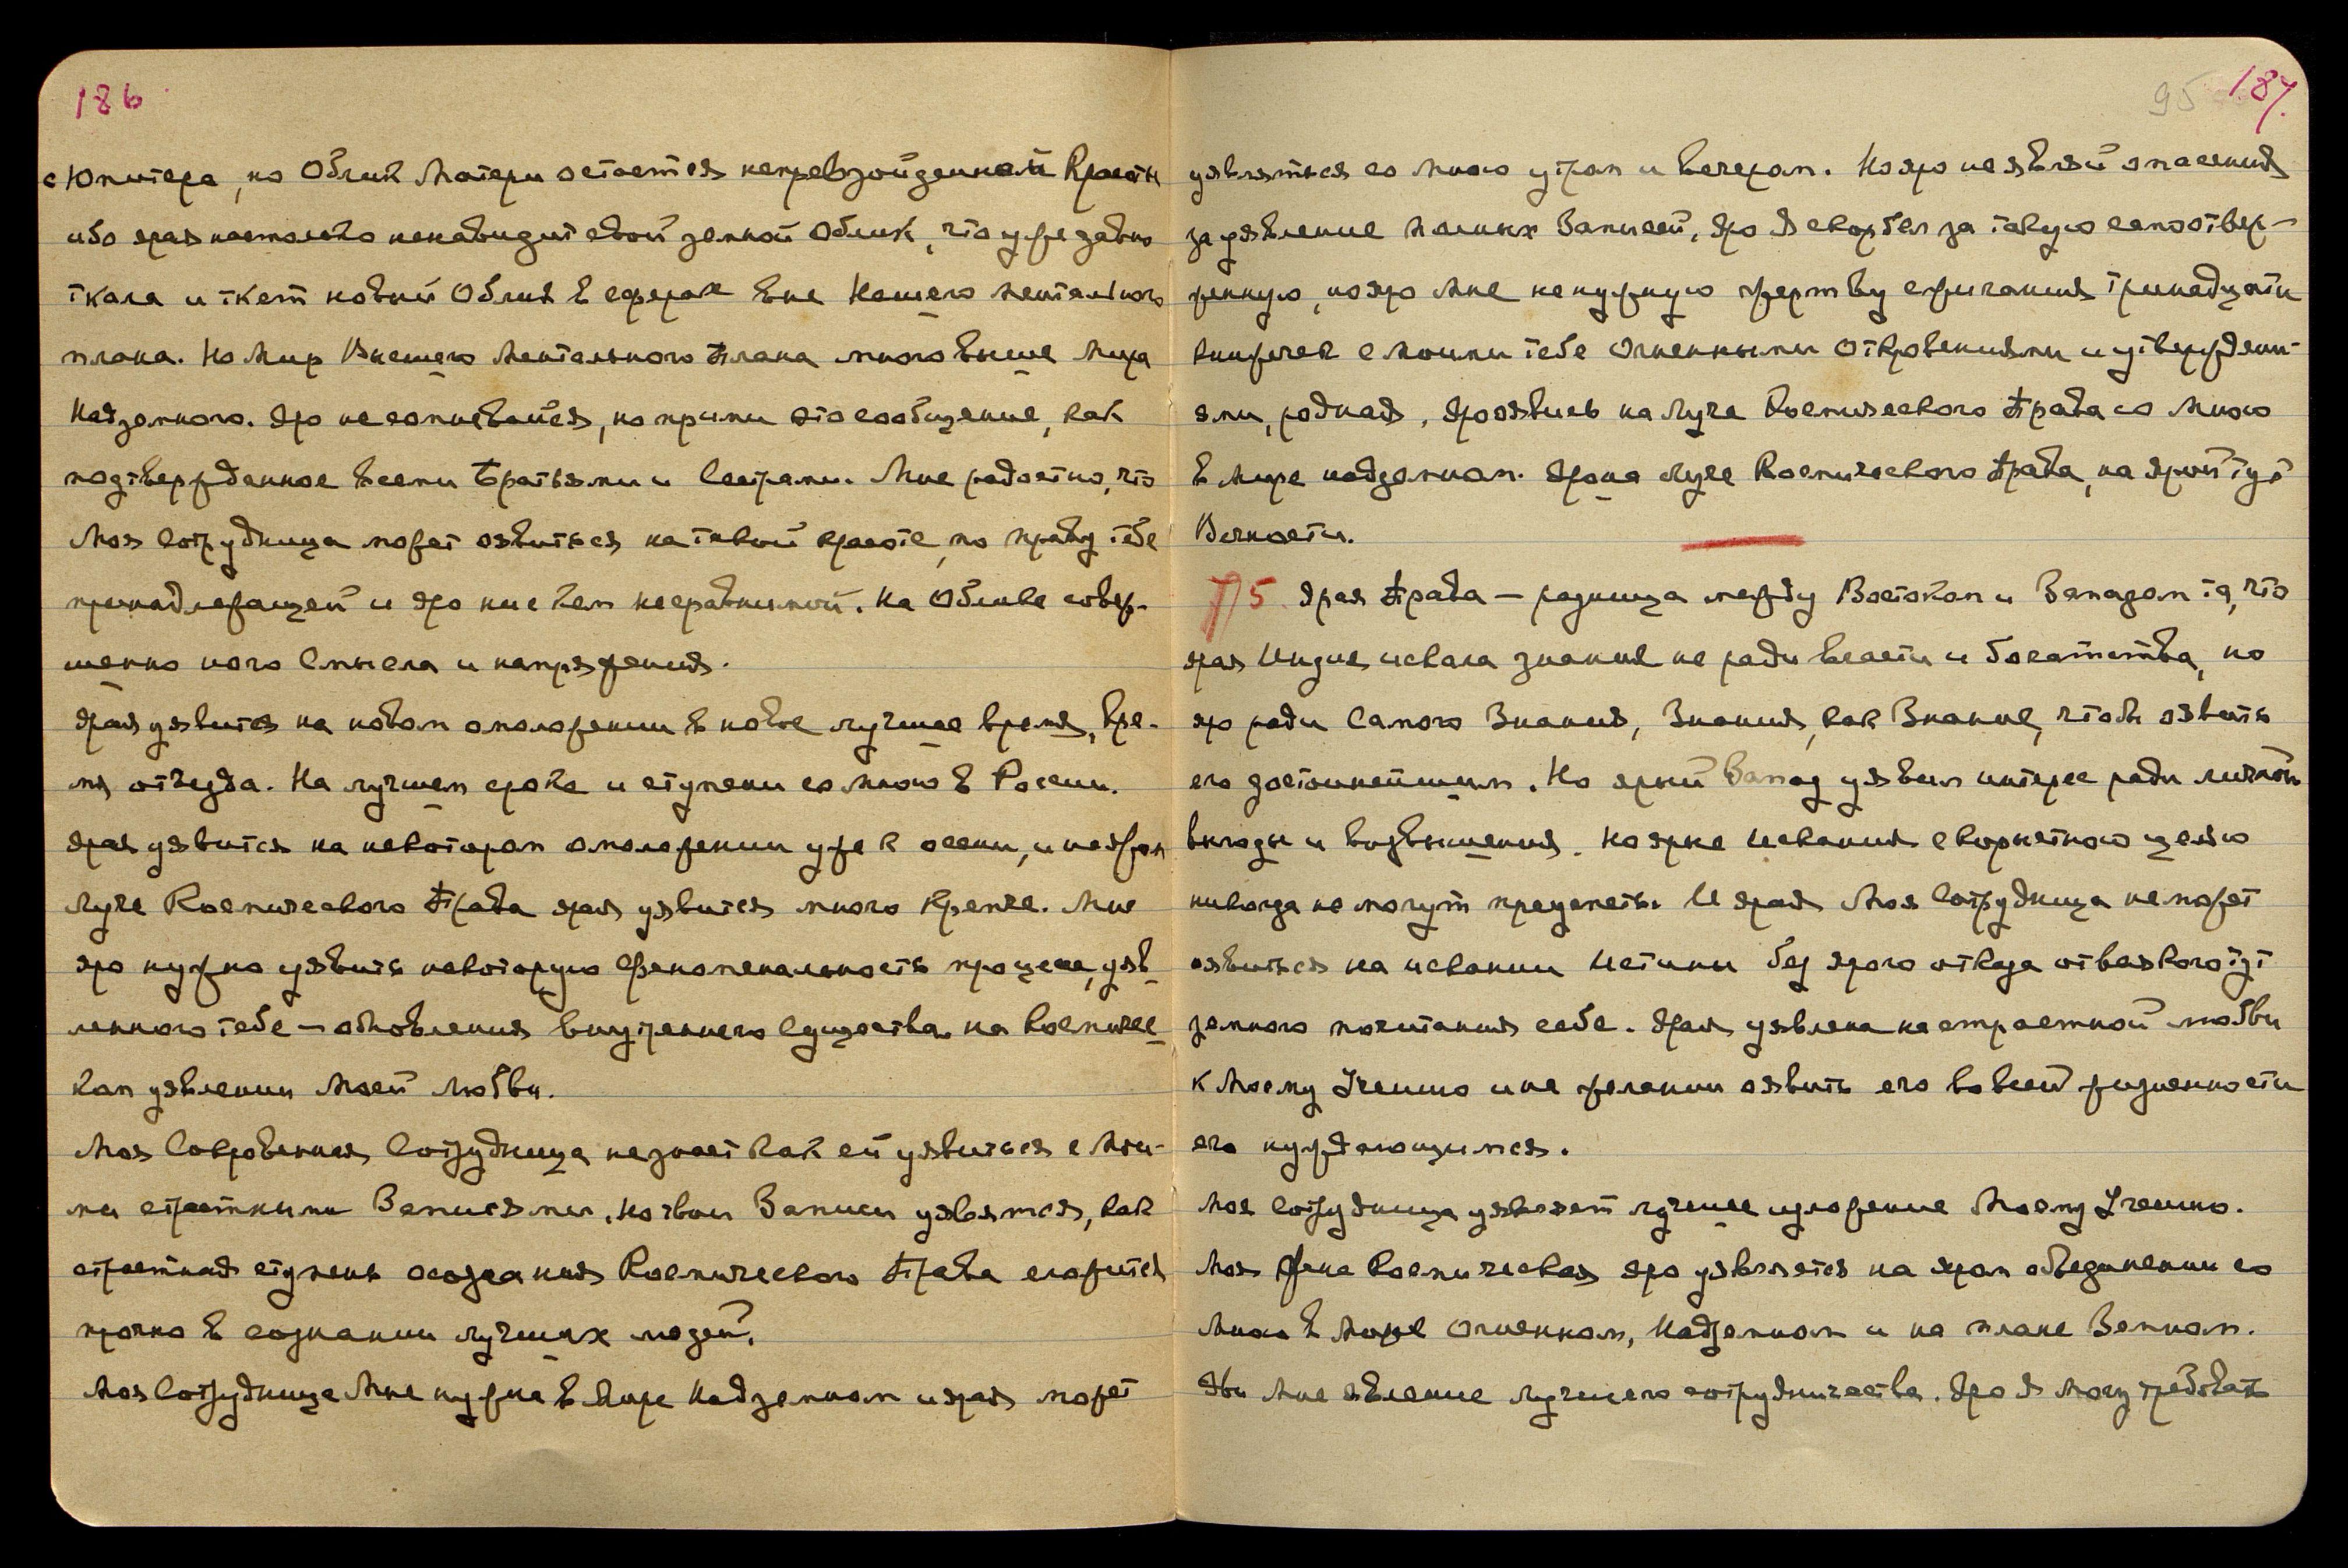 186
с Юпитера, но Облик Матери остается непревзойденной Красоты
ибо ярая настолько ненавидит свой земной Облик, что уже давно
ткала и ткет новый Облик в сферах вне Нашего ментального
плана. Но Мир Высшего Ментального Плана много выше Мира
Надземного. Яро не сомневайся, но прими это сообщение, как
подтвержденное всеми Братьями и Сестрами. Мне радостно, что
Моя Сотрудница может оявиться на такой красоте, по праву тебе
принадлежащей и яро ни с кем несравнимой. На Облике совер-
шенно иного Смысла и напряжения.
Ярая уявится на новом омоложении в новое лучшее время, вре-
мя отъезда. На лучшем сроке и ступени со Мною в России.
Ярая уявится на некотором омоложении уже к осени, и на яром
Луче Космического Права ярая уявится много крепче. Мне
яро нужно уявить некоторую феноменальность процесса, уяв-
ленного тебе – обновления внутреннего Существа на Космичес-
ком уявлении Моей Любви.
Моя Сокровенная Сотрудница не знает как ей уявиться с Мои-
ми страстными Записями. Но твои Записи уявятся, как
страстная ступень осознания Космического Права сложится
прочно в сознании лучших людей.
Моя Сотрудница Мне нужна в Мире Надземном и ярая может
95 187.
уявляться со Мною утром и вечером. Но яро не являй опасения
за уявление Моих Записей. Яро Я скорбел за такую самоотвер-
женную, но яро Мне ненужную жертву сжигания тринадцати
книжек с Моими тебе Огненными Откровениями и утверждени-
ями, родная. Яро явись на Луче Космического Права со Мною
в Мире надземном. Яро на Луче Космического Права, на ярой тут
Вечности.
75 Ярая Правда – разница между Востоком и Западом та, что
ярая Индия искала знания не ради власти и богатства, но
яро ради Самого Знания, Знания, как Знание, чтобы оявить
его достойнейшим. Но ярый Запад уявил интерес ради личной
выгоды и возвышения. Но ярые Искания с корыстною целью
никогда не могут преуспеть. И ярая Моя Сотрудница не может
оявиться на искании Истины без ярого отказа от всякого тут
земного почитания себе. Ярая уявлена на страстной любви
к Моему Учению и на желании оявить его во всей жизненности
его нуждающимся.
Моя сотрудница уявляет лучшее изложение Моему Учению.
Моя Жена Космическая яро уявляется на яром объединении со
Мною в Мире Огненном, Надземном и на плане Земном.
Яви Мне явление лучшего сотрудничества. Яро Я могу требовать